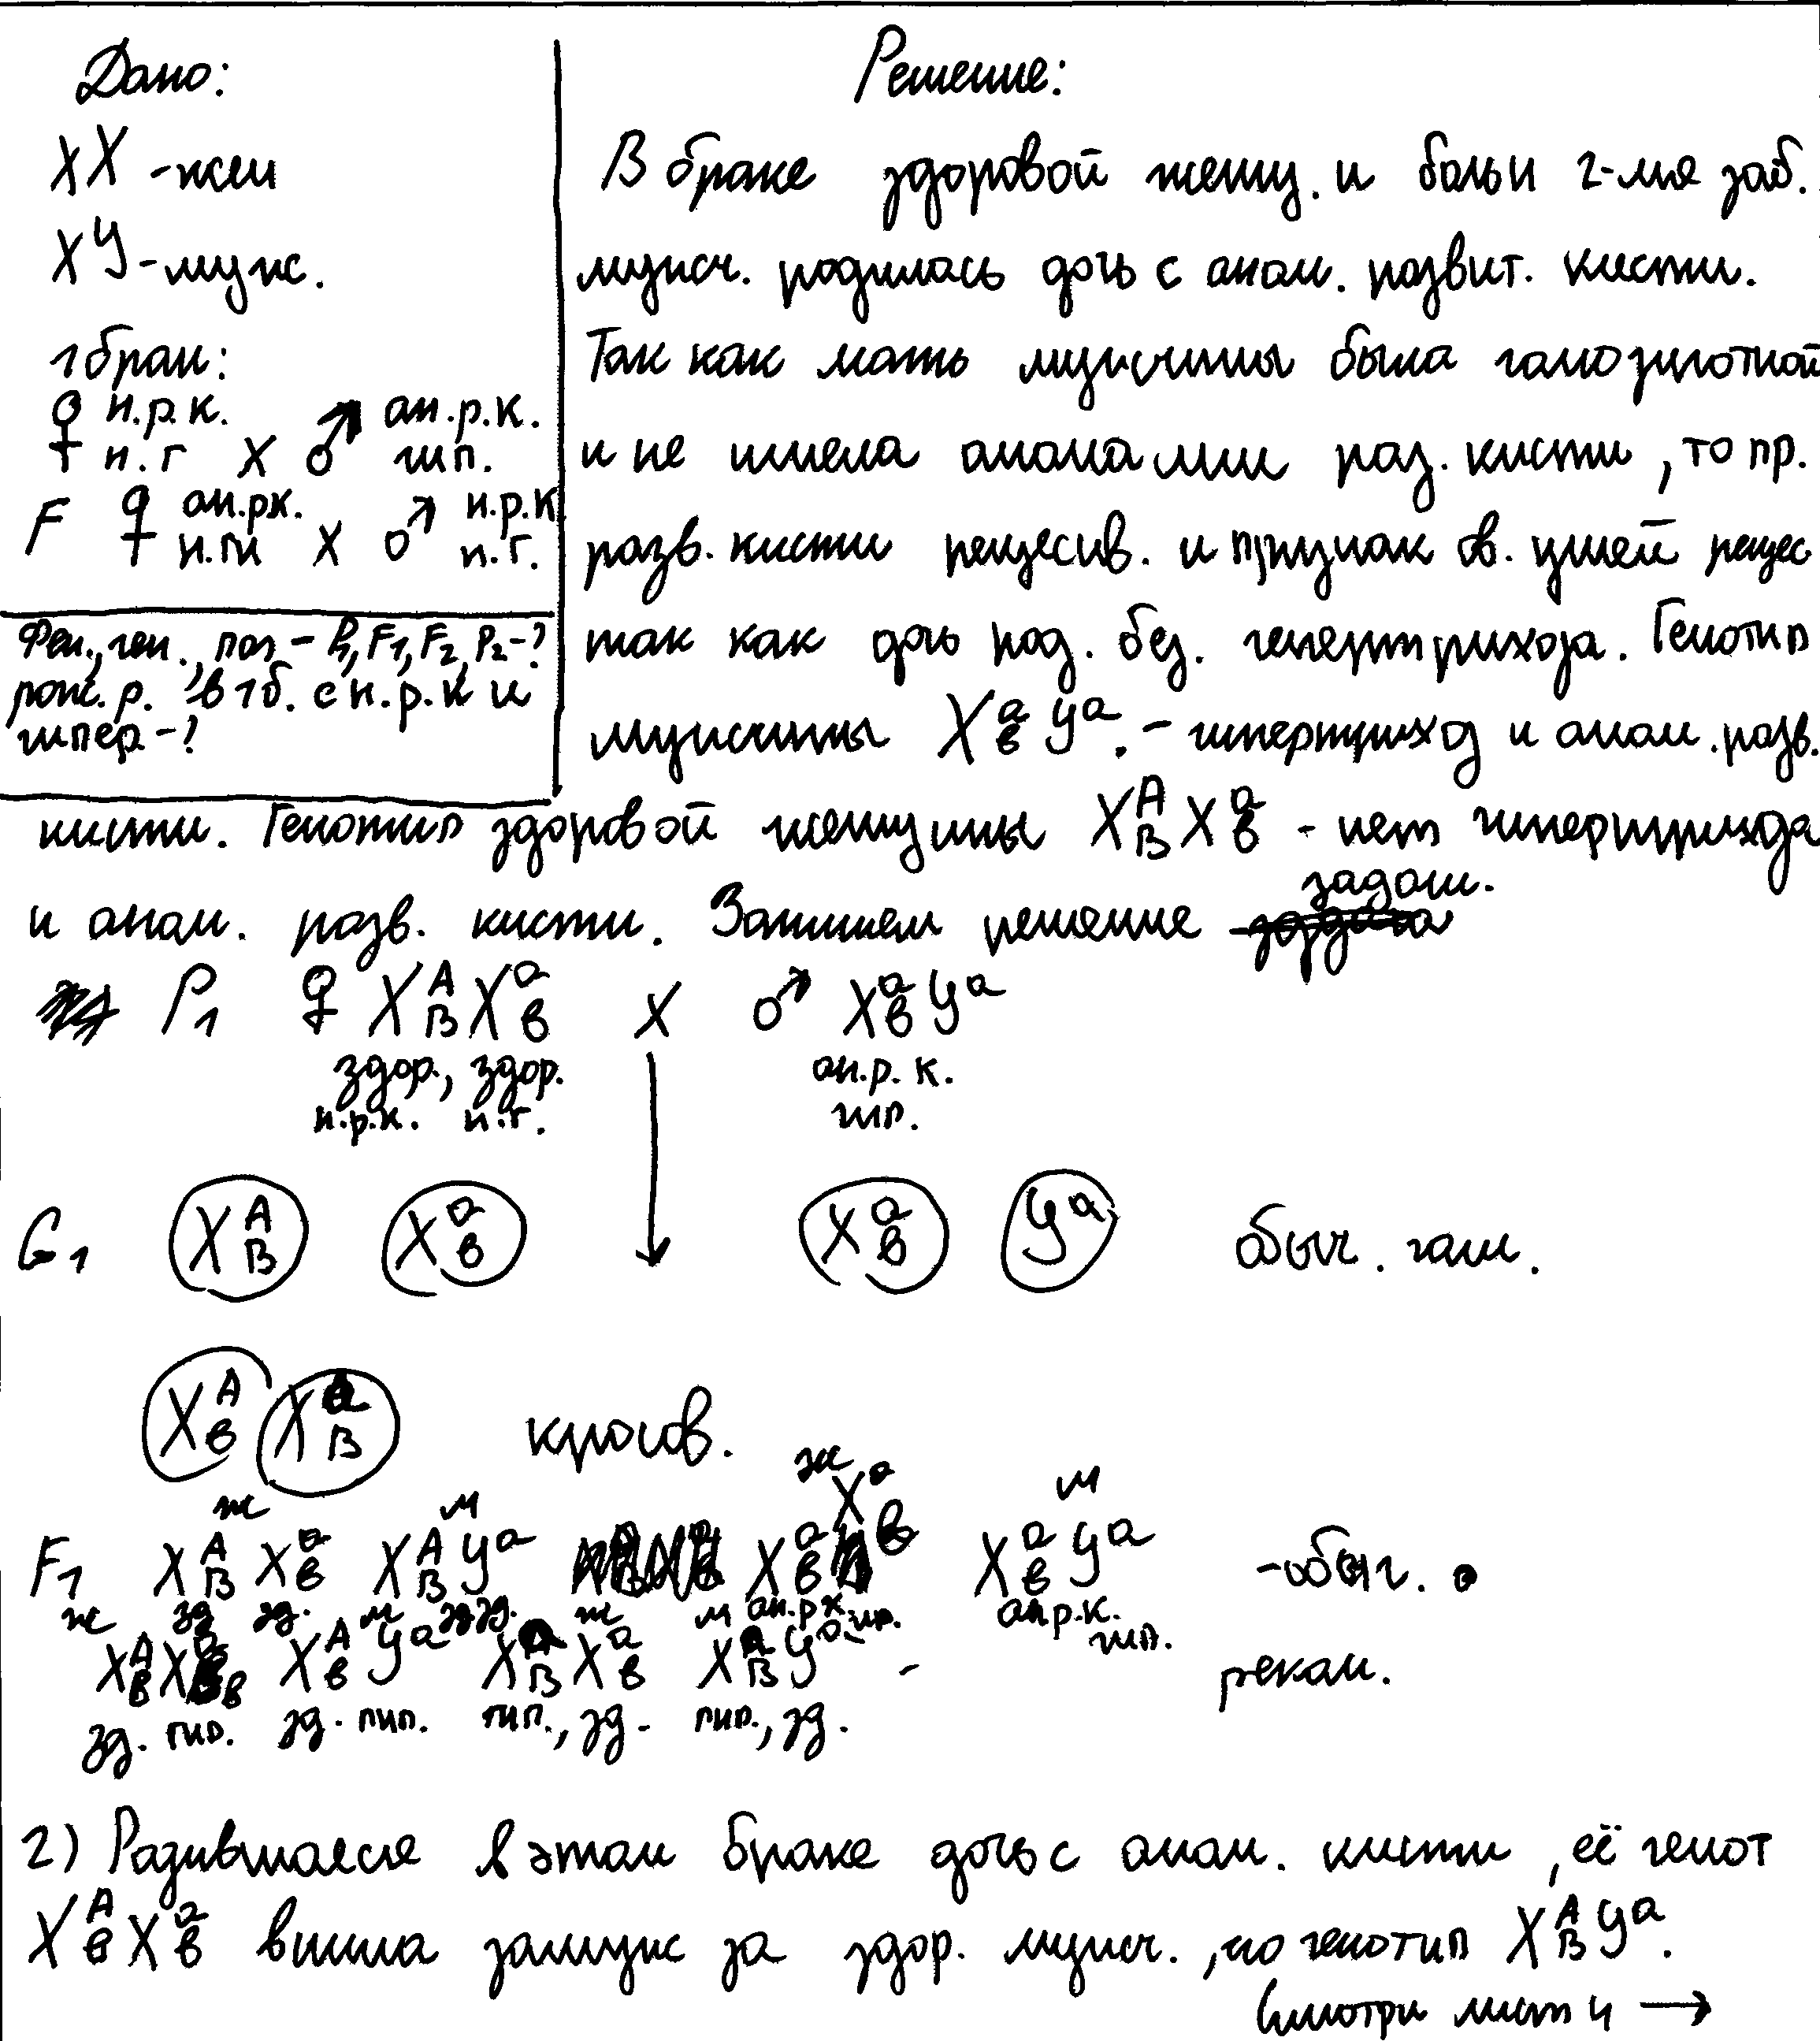 Дано:
XX - жен
XY - муж.
1 брак:
♀ н.р.к. ♂ ан.р.к.
н.г X гип.
F ♀ ан.рк. ♂ н.р.к
н.ги X н.г.
Фен., ген., пол - P1, F1, F2, P2 - ?
рож. р. в 1б. с н.р.к и
гипер - ?
Решение:
В браке здоровой женщ. и больн 2-мя заб.
мужч. родилась дочь с аном. развит. кисти.
Так как мать мужчины была гомозиготной
и не имела аномалии раз. кисти, то пр.
разв. кисти рецессив. и признак ов. ушей рецес
так как дочь род. без. гепертрихоза. Генотип
мужчины X^a_в Y^a. - гипертрихоз и аном. разв.
кисти. Генотип здоровой женщины X^A_B X^a_в - нет гипертрихоза
и аном. разв. кисти. Запишем решение задачи.
P1 ♀ X^A_B X^a_в X ♂ X^a_в Y^a
здор., здор. ан.р. к.
н.р.к. н.г. гип.
G1 X^A_B X^a_в X^a_в Y^a обыч. гам.
X^A_в X^a_B кросов.
ж м ж м
F1 X^A_B X^a_в X^A_B Y^a X^a_в X^a_в X^a_в Y^a - обыч.
зд зд. зд зд. ан.р.к. гип. ан.р.к. гип.
ж м ж м
X^A_в X^a_в X^A_в Y^a X^a_B X^a_в X^a_B Y^a - реком.
зд. гип. зд. гип. гип., зд. гип., зд.
2) Родившаяся в этом браке дочь с аном. кисти, её генот
X^A_в X^a_в вышла замуж за здор. мужч., но генотип X^A_B Y^a.
Смотри лист 4 →